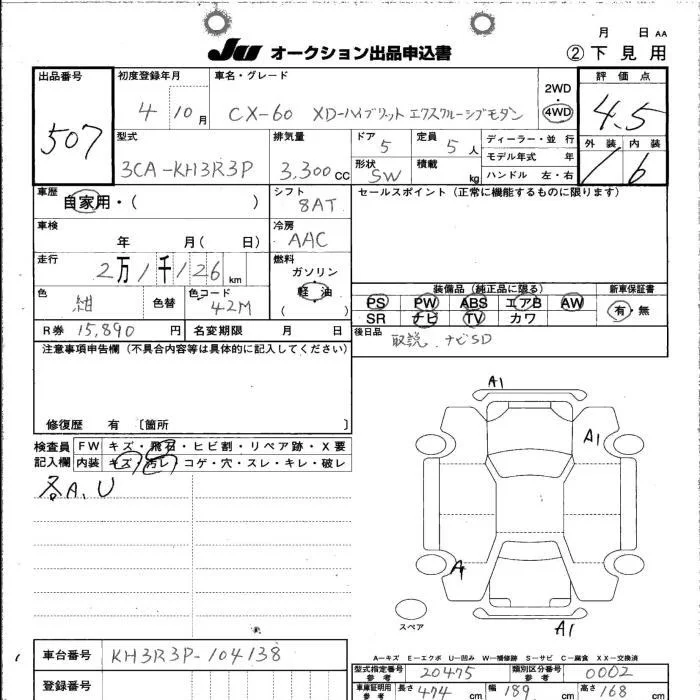 月 日 AA
JU オークション出品申込書 ② 下見用
出品番号 初度登録年月 車名・グレード 評価点
507 4 10月 CX-60 XD-ハイブリット エクスクルーシブモダン 2WD 4WD 4.5
型式 排気量 ドア 定員 ディーラー・並行 外装 内装
3CA-KH3R3P 3,300cc 5 5人 モデル年式 年
形状 積載 ハンドル 左・右
SW kg 1 b
車歴 シフト セールスポイント (正常に機能するものに限ります)
自家用・( ) 8AT
車検 冷房
年 月( 日) AAC
走行 燃料
2万1千126 km ガソリン
軽油
( )
装備品 (純正品に限る) 新車保証書
PS PW ABS エアB AW 有・無
SR ナビ TV カワ
色 色替 色コード
紺 42M
R券 15,890 円 名変期限 月 日
後日品 取説、ナビSD
注意事項申告欄 (不具合内容等は具体的に記入してください)
修復歴 有 〔箇所 〕
検査員記入欄
FW キズ・飛石・ヒビ割・リペア跡・X要
内装 キズ・汚レ・コゲ・穴・スレ・キレ・破レ
各A、U
A1
A1
A
A1
スペア
A-キズ E-エクボ U-凹み W-補修跡 S-サビ C-腐食 XX-交換済
車台番号 KH3R3P-104138
登録番号
型式指定番号 参考 20475 類別区分番号 参考 0002
車庫証明用 参考 長さ 474 cm 幅 189 cm 高さ 168 cm